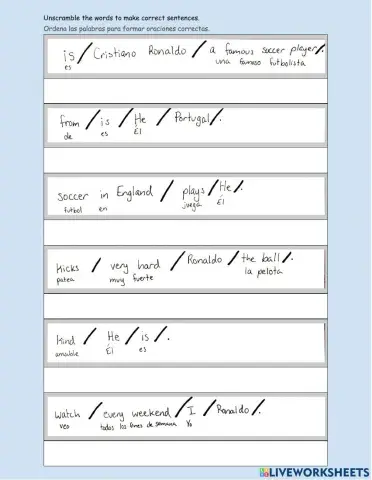 Unscramble the words to make correct sentences.
Ordena las palabras para formar oraciones correctas.
is / Cristiano Ronaldo / a famous soccer player /.
es una famoso futbolista
from / is / He / Portugal /.
de es Él
soccer in England / plays / He /.
futbol en juega Él
Kicks / very hard / Ronaldo / the ball /.
patea muy fuerte la pelota
Kind / He / is /.
amable Él es
Watch / every weekend / I / Ronaldo /.
veo todos los fines de semana Yo
LIVEWORKSHEETS